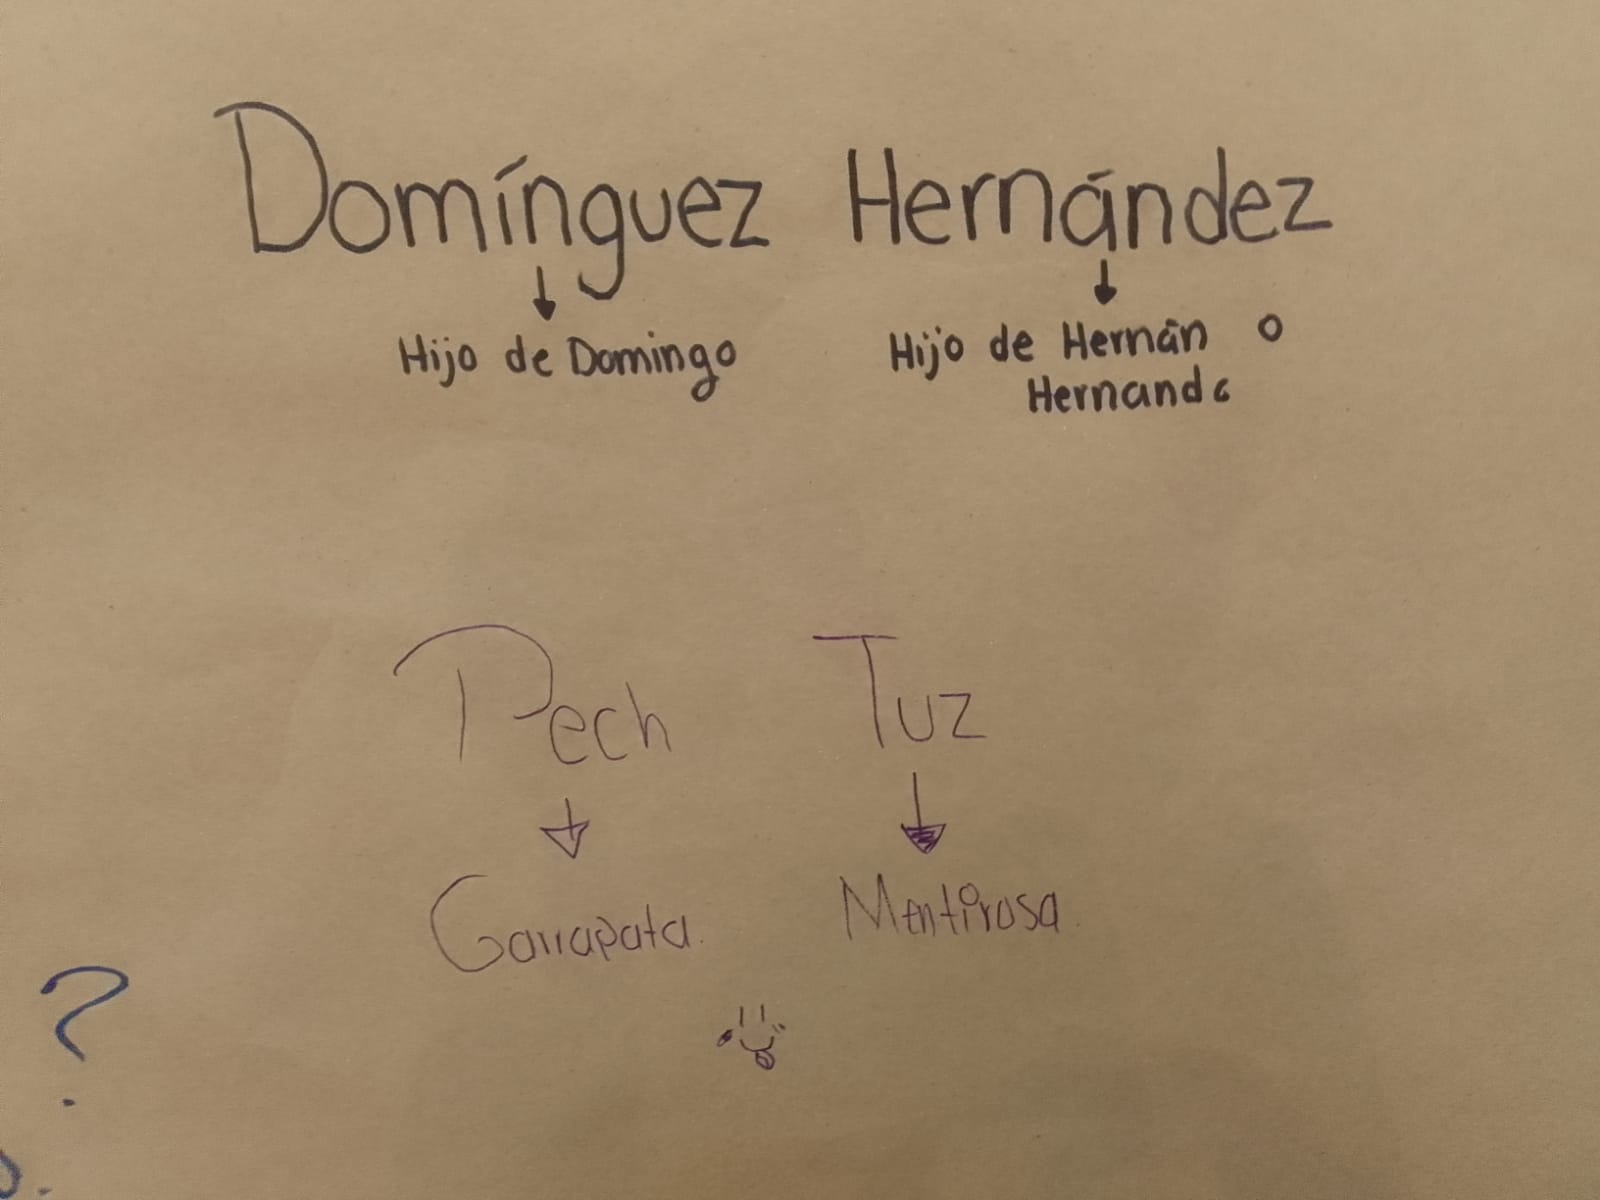 Domínguez Hernández
Hijo de Domingo
Hijo de Hernán o
Hernando
Pech Tuz
Garrapata. Mentirosa.
?